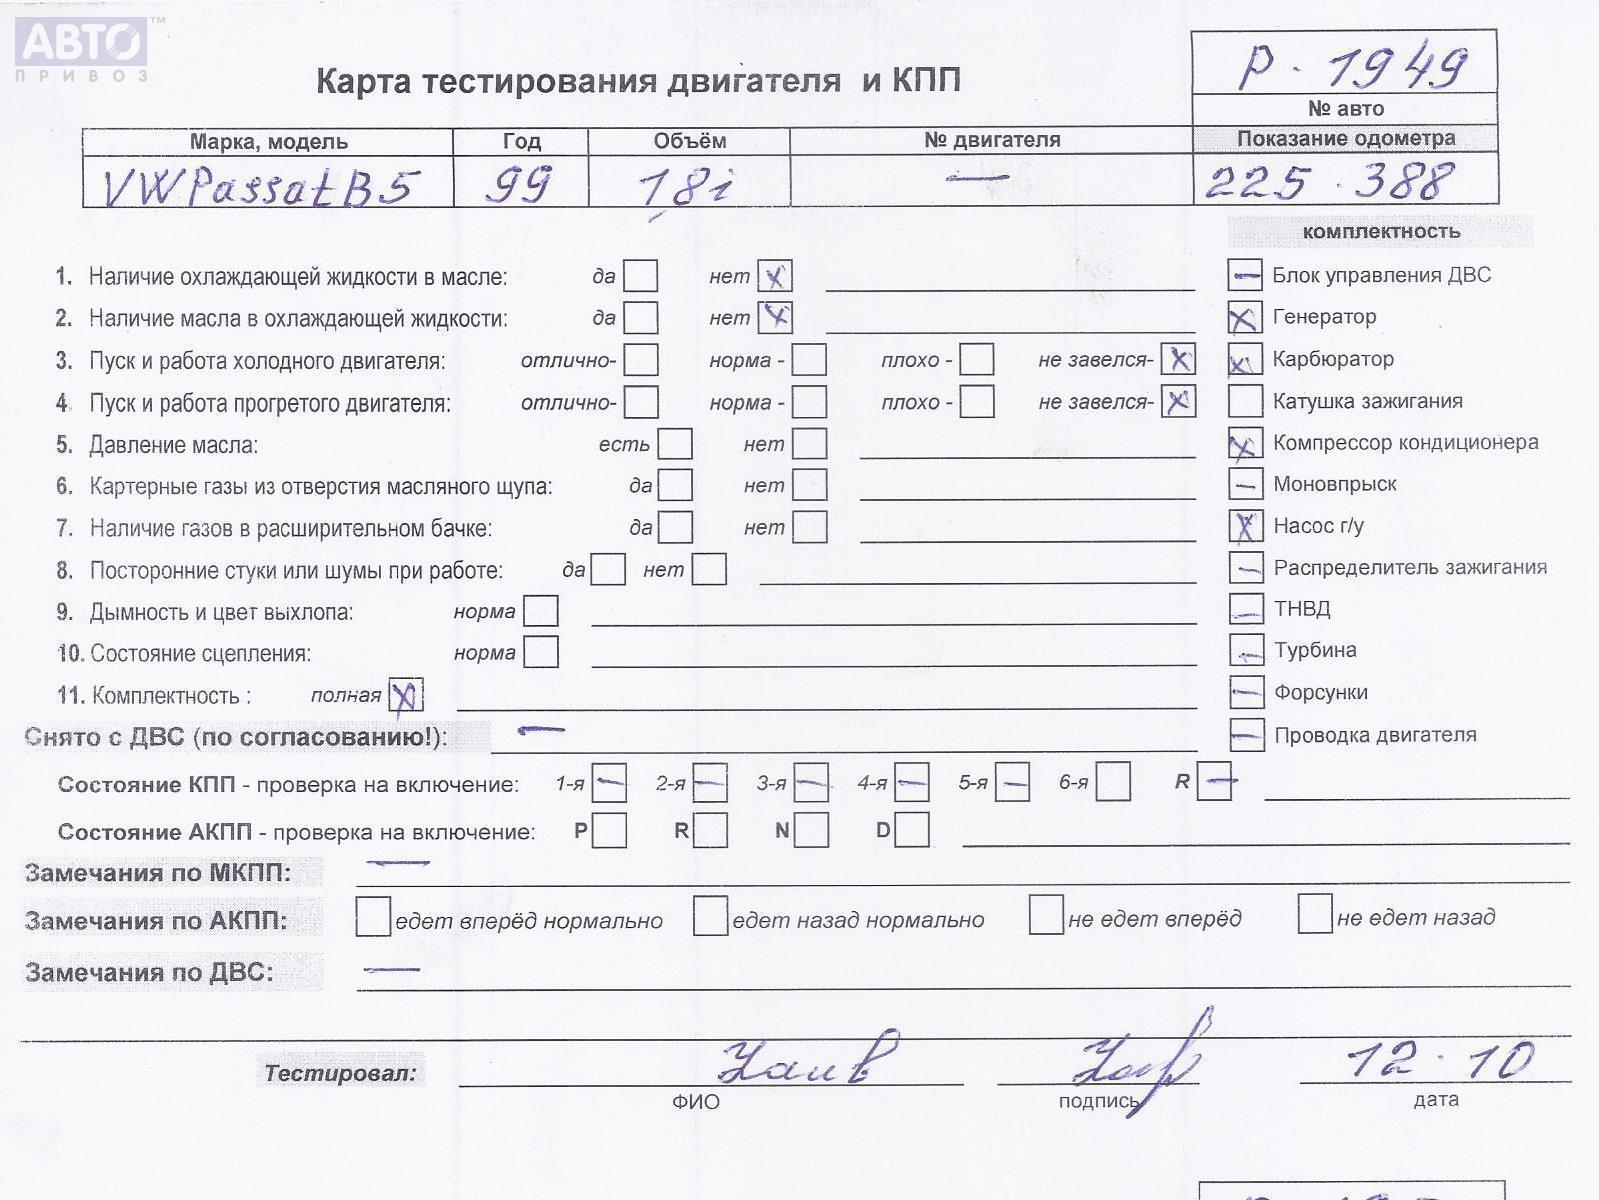 АВТО™
ПРИВОЗ
Карта тестирования двигателя и КПП
P - 1949
№ авто
Марка, модель Год Объём № двигателя Показание одометра
VW Passat B5 99 1,8i — 225.388
комплектность
1. Наличие охлаждающей жидкости в масле: да нет X
2. Наличие масла в охлаждающей жидкости: да нет X
3. Пуск и работа холодного двигателя: отлично- норма - плохо - не завелся- X
4. Пуск и работа прогретого двигателя: отлично- норма - плохо - не завелся- X
5. Давление масла: есть нет
6. Картерные газы из отверстия масляного щупа: да нет
7. Наличие газов в расширительном бачке: да нет
8. Посторонние стуки или шумы при работе: да нет
9. Дымность и цвет выхлопа: норма
10. Состояние сцепления: норма
11. Комплектность : полная X
— Блок управления ДВС
X Генератор
X Карбюратор
Катушка зажигания
X Компрессор кондиционера
— Моновпрыск
X Насос г/у
— Распределитель зажигания
— ТНВД
— Турбина
— Форсунки
— Проводка двигателя
Снято с ДВС (по согласованию!): —
Состояние КПП - проверка на включение: 1-я — 2-я — 3-я — 4-я — 5-я — 6-я R —
Состояние АКПП - проверка на включение: P R N D
Замечания по МКПП: —
Замечания по АКПП: едет вперёд нормально едет назад нормально не едет вперёд не едет назад
Замечания по ДВС: —
Тестировал: 12.10
ФИО подпись дата